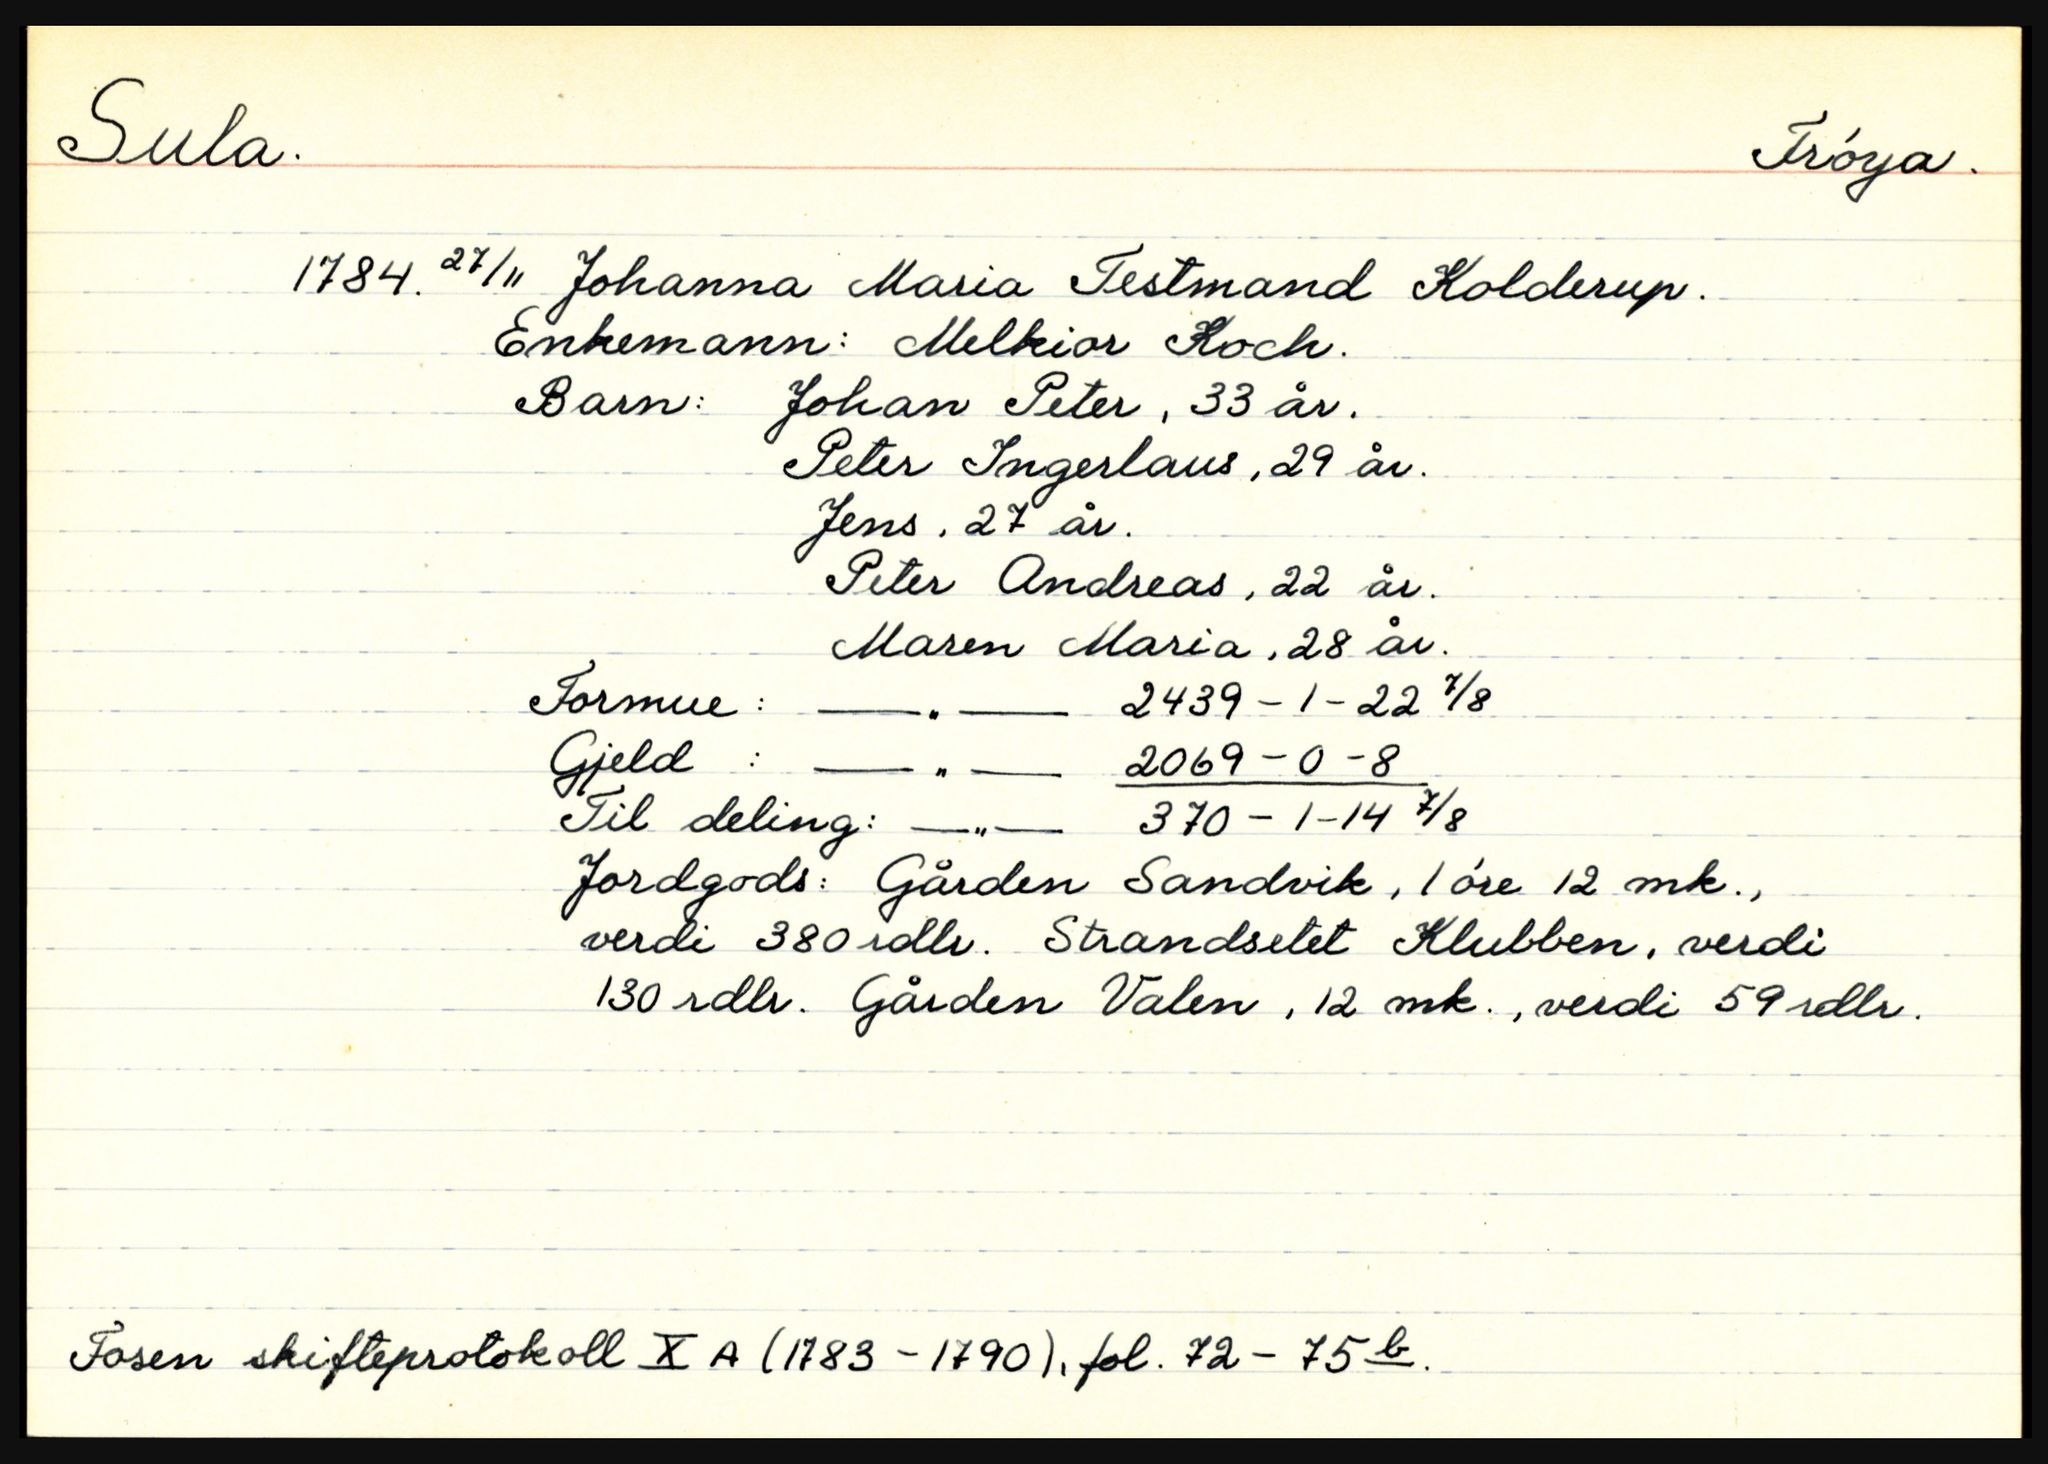 Sula.
Fróya.
1784. 27/11 Johanna Maria Testmand Kolderup.
Enkemann: Melkior Koch.
Barn: Johan Peter, 33 år.
Peter Ingerlaus, 29 år.
Jens, 27 år.
Peter Andreas, 22 år.
Maren Maria, 28 år.
Formue: —„— 2439-1-22 7/8
Gjeld : —„— 2069-0-8
Til deling: —„— 370-1-14 7/8
Jordgods: Gården Sandvik, 1 óre 12 mk.,
verdi 380 rdlr. Strandsetet Klubben, verdi
130 rdlr. Gården Valen, 12 mk., verdi 59 rdlr.
Fosen skifteprotokoll X A (1783-1790), fol. 72-75 b.